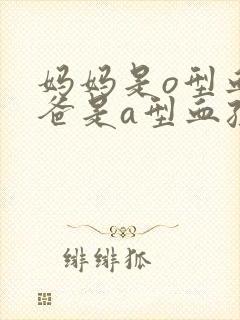 妈妈是o型
爸是a型血
绯绯狐